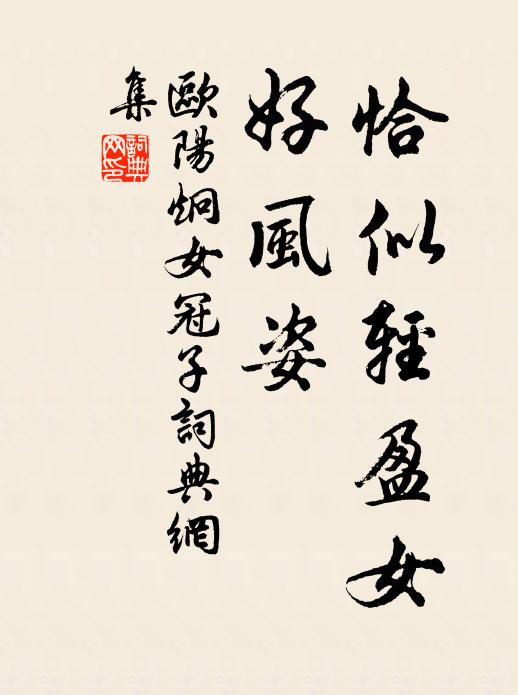 恰似輕盈女
好風姿
歐陽炯女冠子詞典網
集
詞典網印